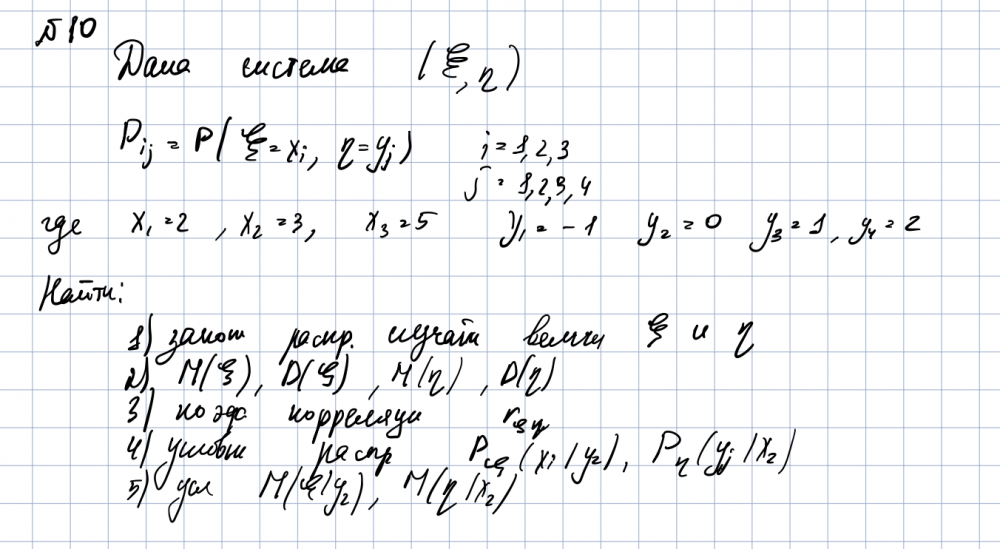 №10
Дана система (ξ, η)
Pij = P(ξ=xi, η=yj) i = 1,2,3
j = 1,2,3,4
где x1=2, x2=3, x3=5 y1=-1 y2=0 y3=1, y4=2
Найти:
1) закон распр. случайн велич ξ и η
2) M(ξ), D(ξ), M(η), D(η)
3) коэф корреляци rξη
4) условн распр Pξ(xi/y2), Pη(yj/x2)
5) усл M(ξ/y2), M(η/x2)